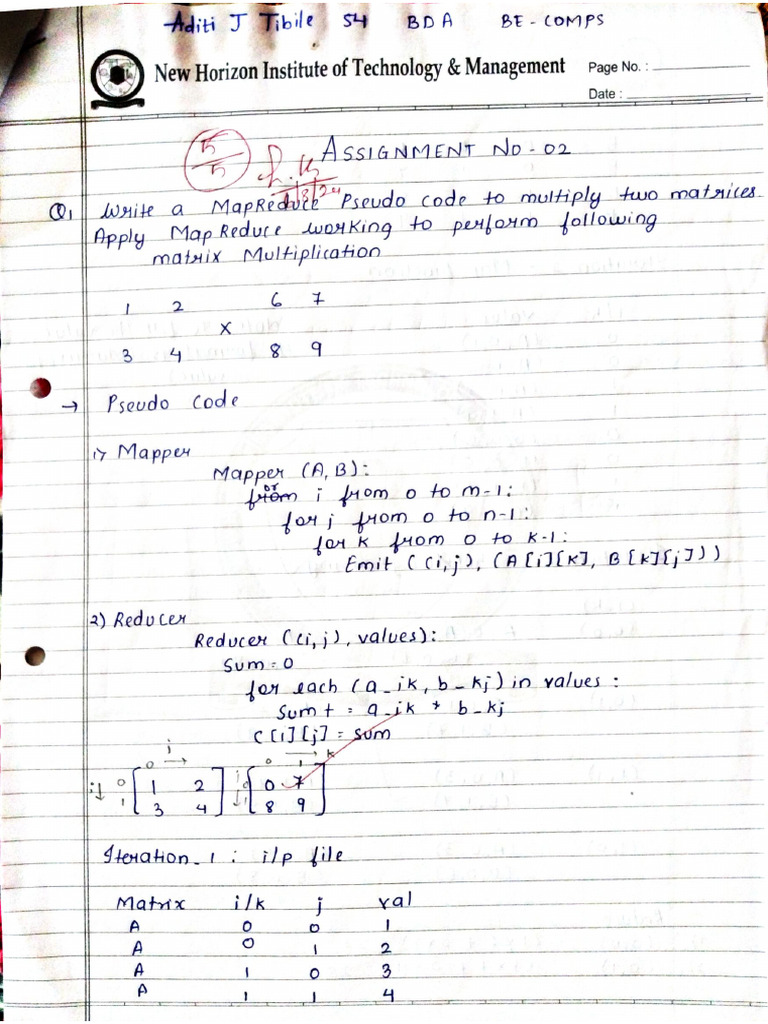 Aditi J Tibile 54 BDA BE-COMPS
New Horizon Institute of Technology & Management
Page No. :
Date :
5/5
ASSIGNMENT NO-02
Q1 Write a MapReduce Pseudo code to multiply two matrices.
Apply MapReduce working to perform following
matrix Multiplication
1 2 6 7
x
3 4 8 9
→ Pseudo code
1) Mapper
Mapper (A, B):
for i from 0 to m-1:
for j from 0 to n-1:
for k from 0 to k-1:
Emit ((i,j), (A[i][k], B[k][j]))
2) Reducer
Reducer ((i,j), values):
Sum = 0
for each (a_ik, b_kj) in values :
Sum + = a_ik * b_kj
C[i][j] = sum
j → → k
0 0 1
i↓ 0 [ 1 2 ] j↓ 0 [ 0 7 ]
1 [ 3 4 ] 1 [ 8 9 ]
Iteration_1 : i/p file
Matrix i/k j val
A 0 0 1
A 0 1 2
A 1 0 3
A 1 1 4